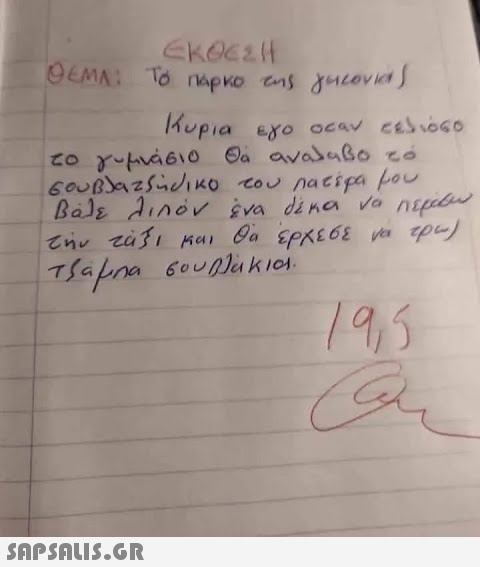 ΕΚΘΕΣΗ
ΘΕΜΑ: Τό πάρκο της γιτονιάς
Κυρια εγο οταν τελιόσο
το γυμνάσιο Θά αναλαβο τό
σουβλατζήδικο του πατέρα μου
Βάλε λιπόν ένα δέκα να περάσω
τήν τάξι και Θά έρχεσε να τρως
Τζάμπα σουβλάκια.
19,5
SAPSALIS.GR